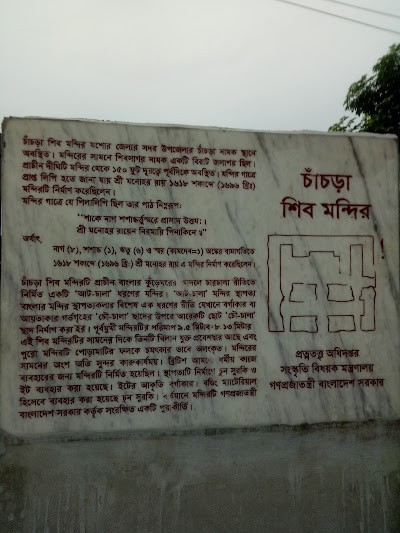 চাঁচড়া শিব মন্দির যশোর জেলার সদর উপজেলার চাঁচড়া নামক স্থানে
অবস্থিত। মন্দিরের সামনে শিবসাগর নামক একটি বিরাট জলাশয় ছিল।
প্রাচীন দীঘিটি মন্দির থেকে ১৫০ ফুট দূরত্বে পূর্বদিকে অবস্থিত। মন্দির গাত্রে
প্রাপ্ত লিপি হতে জানা যায় শ্রী মনোহর রায় ১৬১৮ শকাব্দে (১৬৯৬ খ্রিঃ)
মন্দিরটি নির্মাণ করেছিলেন।
মন্দির গাত্রে যে শিলালিপি ছিল তার পাঠ নিম্নরূপঃ
“শাকে নাগ শশাঙ্কর্ত্তুস্মরে প্রাসাদ উত্তমঃ।
শ্রী মনোহর রায়েন নিরমায়ি পিনাকিনে॥”
অর্থাৎ
নাগ (৮), শশাঙ্ক (১), ঋতু (৬) ও স্মর (কামদেব=১) অঙ্কের বামাগতিতে
১৬১৮ শকাব্দে (১৬৯৬ খ্রিঃ) শ্রী মনোহর রায় এ মন্দির নির্মাণ করেছিলেন।
চাঁচড়া শিব মন্দিরটি প্রাচীন বাংলার কুঁড়েঘরের আদলে চারচালা রীতিতে
নির্মিত একটি ‘আট-চালা’ ধরণের মন্দির। ‘আট-চালা’ মন্দির স্থাপত্য
বাংলার মন্দির স্থাপত্যকলার বিশেষ এক ধরণের রীতি যেখানে বর্গাকার বা
আয়তাকার গর্ভগৃহের ‘চৌ-চালা’ ছাদের উপরে আরেকটি ছোট ‘চৌ-চালা’
ছাদ নির্মাণ করা হয়। পূর্বমুখী মন্দিরটির পরিমাপ ৯.৫ মিটার×৮.১৩ মিটার।
এই শিব মন্দিরটির সামনের দিকে তিনটি খিলান যুক্ত প্রবেশদ্বার আছে এবং
পুরো মন্দিরটি পোড়ামাটির ফলকে চমৎকার ভাবে অলংকৃত। মন্দিরের
সামনের অংশ অতি সুন্দর কারুকার্যময়। ব্রিটিশ আমলে ধর্মীয় কাজে
ব্যবহারের জন্য মন্দিরটি নির্মিত হয়েছিল। স্থাপত্যটি নির্মাণে চুন সুরকি ও
ইট ব্যবহার করা হয়েছে। ইটের আকৃতি বর্গাকার। বন্ডিং ম্যাটেরিয়াল
হিসেবে ব্যবহার করা হয়েছে চুন সুরকি। বর্তমানে মন্দিরটি গণপ্রজাতন্ত্রী
বাংলাদেশ সরকার কর্তৃক সংরক্ষিত একটি পুরাকীর্তি।
চাঁচড়া
শিব মন্দির
প্রত্নতত্ত্ব অধিদপ্তর
সংস্কৃতি বিষয়ক মন্ত্রণালয়
গণপ্রজাতন্ত্রী বাংলাদেশ সরকার